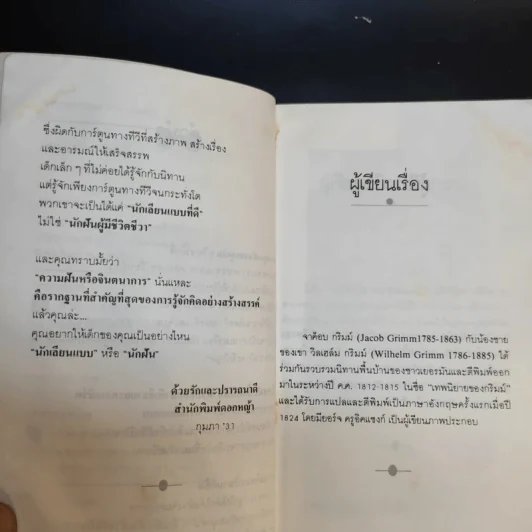 ซึ่งผิดกับการ์ตูนทางทีวีที่สร้างภาพ สร้างเรื่อง
และอารมณ์ให้เสร็จสรรพ
เด็กเล็ก ๆ ที่ไม่ค่อยได้รู้จักกับนิทาน
แต่รู้จักเพียงการ์ตูนทางทีวีจนกระทั่งโต
พวกเขาจะเป็นได้แค่ "นักเลียนแบบที่ดี"
ไม่ใช่ "นักฝันผู้มีชีวิตชีวา"
และคุณทราบมั้ยว่า
"ความฝันหรือจินตนาการ" นั่นแหละ
คือรากฐานที่สำคัญที่สุดของการรู้จักคิดอย่างสร้างสรรค์
แล้วคุณล่ะ...
คุณอยากให้เด็กของคุณเป็นอย่างไหน
"นักเลียนแบบ" หรือ "นักฝัน"
ด้วยรักและปรารถนาดี
สำนักพิมพ์ดอกหญ้า
กุมภา '31
ผู้เขียนเรื่อง
จาค็อบ กริมม์ (Jacob Grimm1785-1863) กับน้องชาย
ของเขา วิลเฮล์ม กริมม์ (Wilhelm Grimm 1786-1885) ได้
ร่วมกันรวบรวมนิทานพื้นบ้านของชาวเยอรมันและตีพิมพ์ออก
มาในระหว่างปี ค.ศ. 1812-1815 ในชื่อ "เทพนิยายของกริมม์"
และได้รับการแปลและตีพิมพ์เป็นภาษาอังกฤษครั้งแรกเมื่อปี
1824 โดยมียอร์จ ครูอิคแชงก์ เป็นผู้เขียนภาพประกอบ